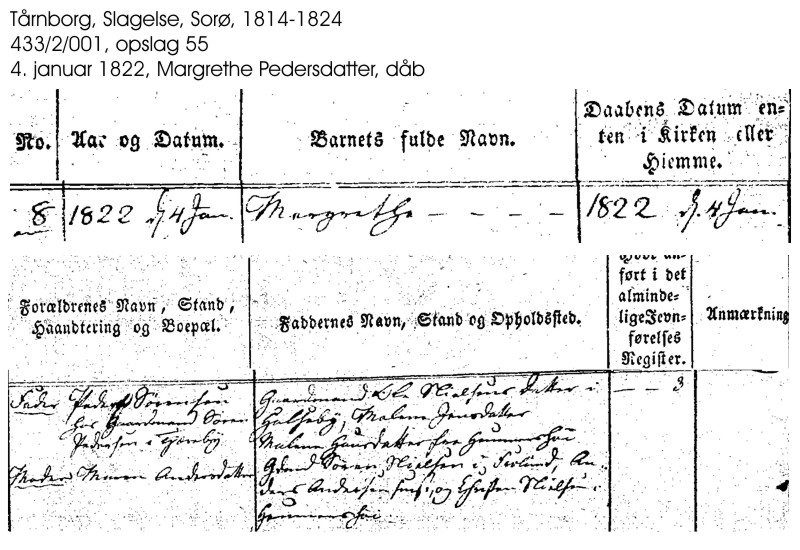 Tårnborg, Slagelse, Sorø, 1814-1824
433/2/001, opslag 55
4. januar 1822, Margrethe Pedersdatter, dåb
No.
Aar og Datum.
Barnets fulde Navn.
Daabens Datum en-
ten i Kirken eller
Hiemme.
8
1822 d. 4 Jan.
Margrethe - - - -
1822 d. 4 Jan.
Forældrenes Navn, Stand,
Haandtering og Boepæl.
Faddernes Navn, Stand og Opholdssted.
ført i det
alminde-
lige Jevn-
førelses
Register.
Anmærkning
Fader Peder Sørensen
hos Gaardmand Søren
Pedersen i
Moder Maren Andersdatter
Gaardmand Ole Nielsens Datter i
Halseby, Malene Jensdatter
Malene Hansdatter fra
Søren Nielsen i An-
ders Andersen og Christen Nielsen i
- - 3